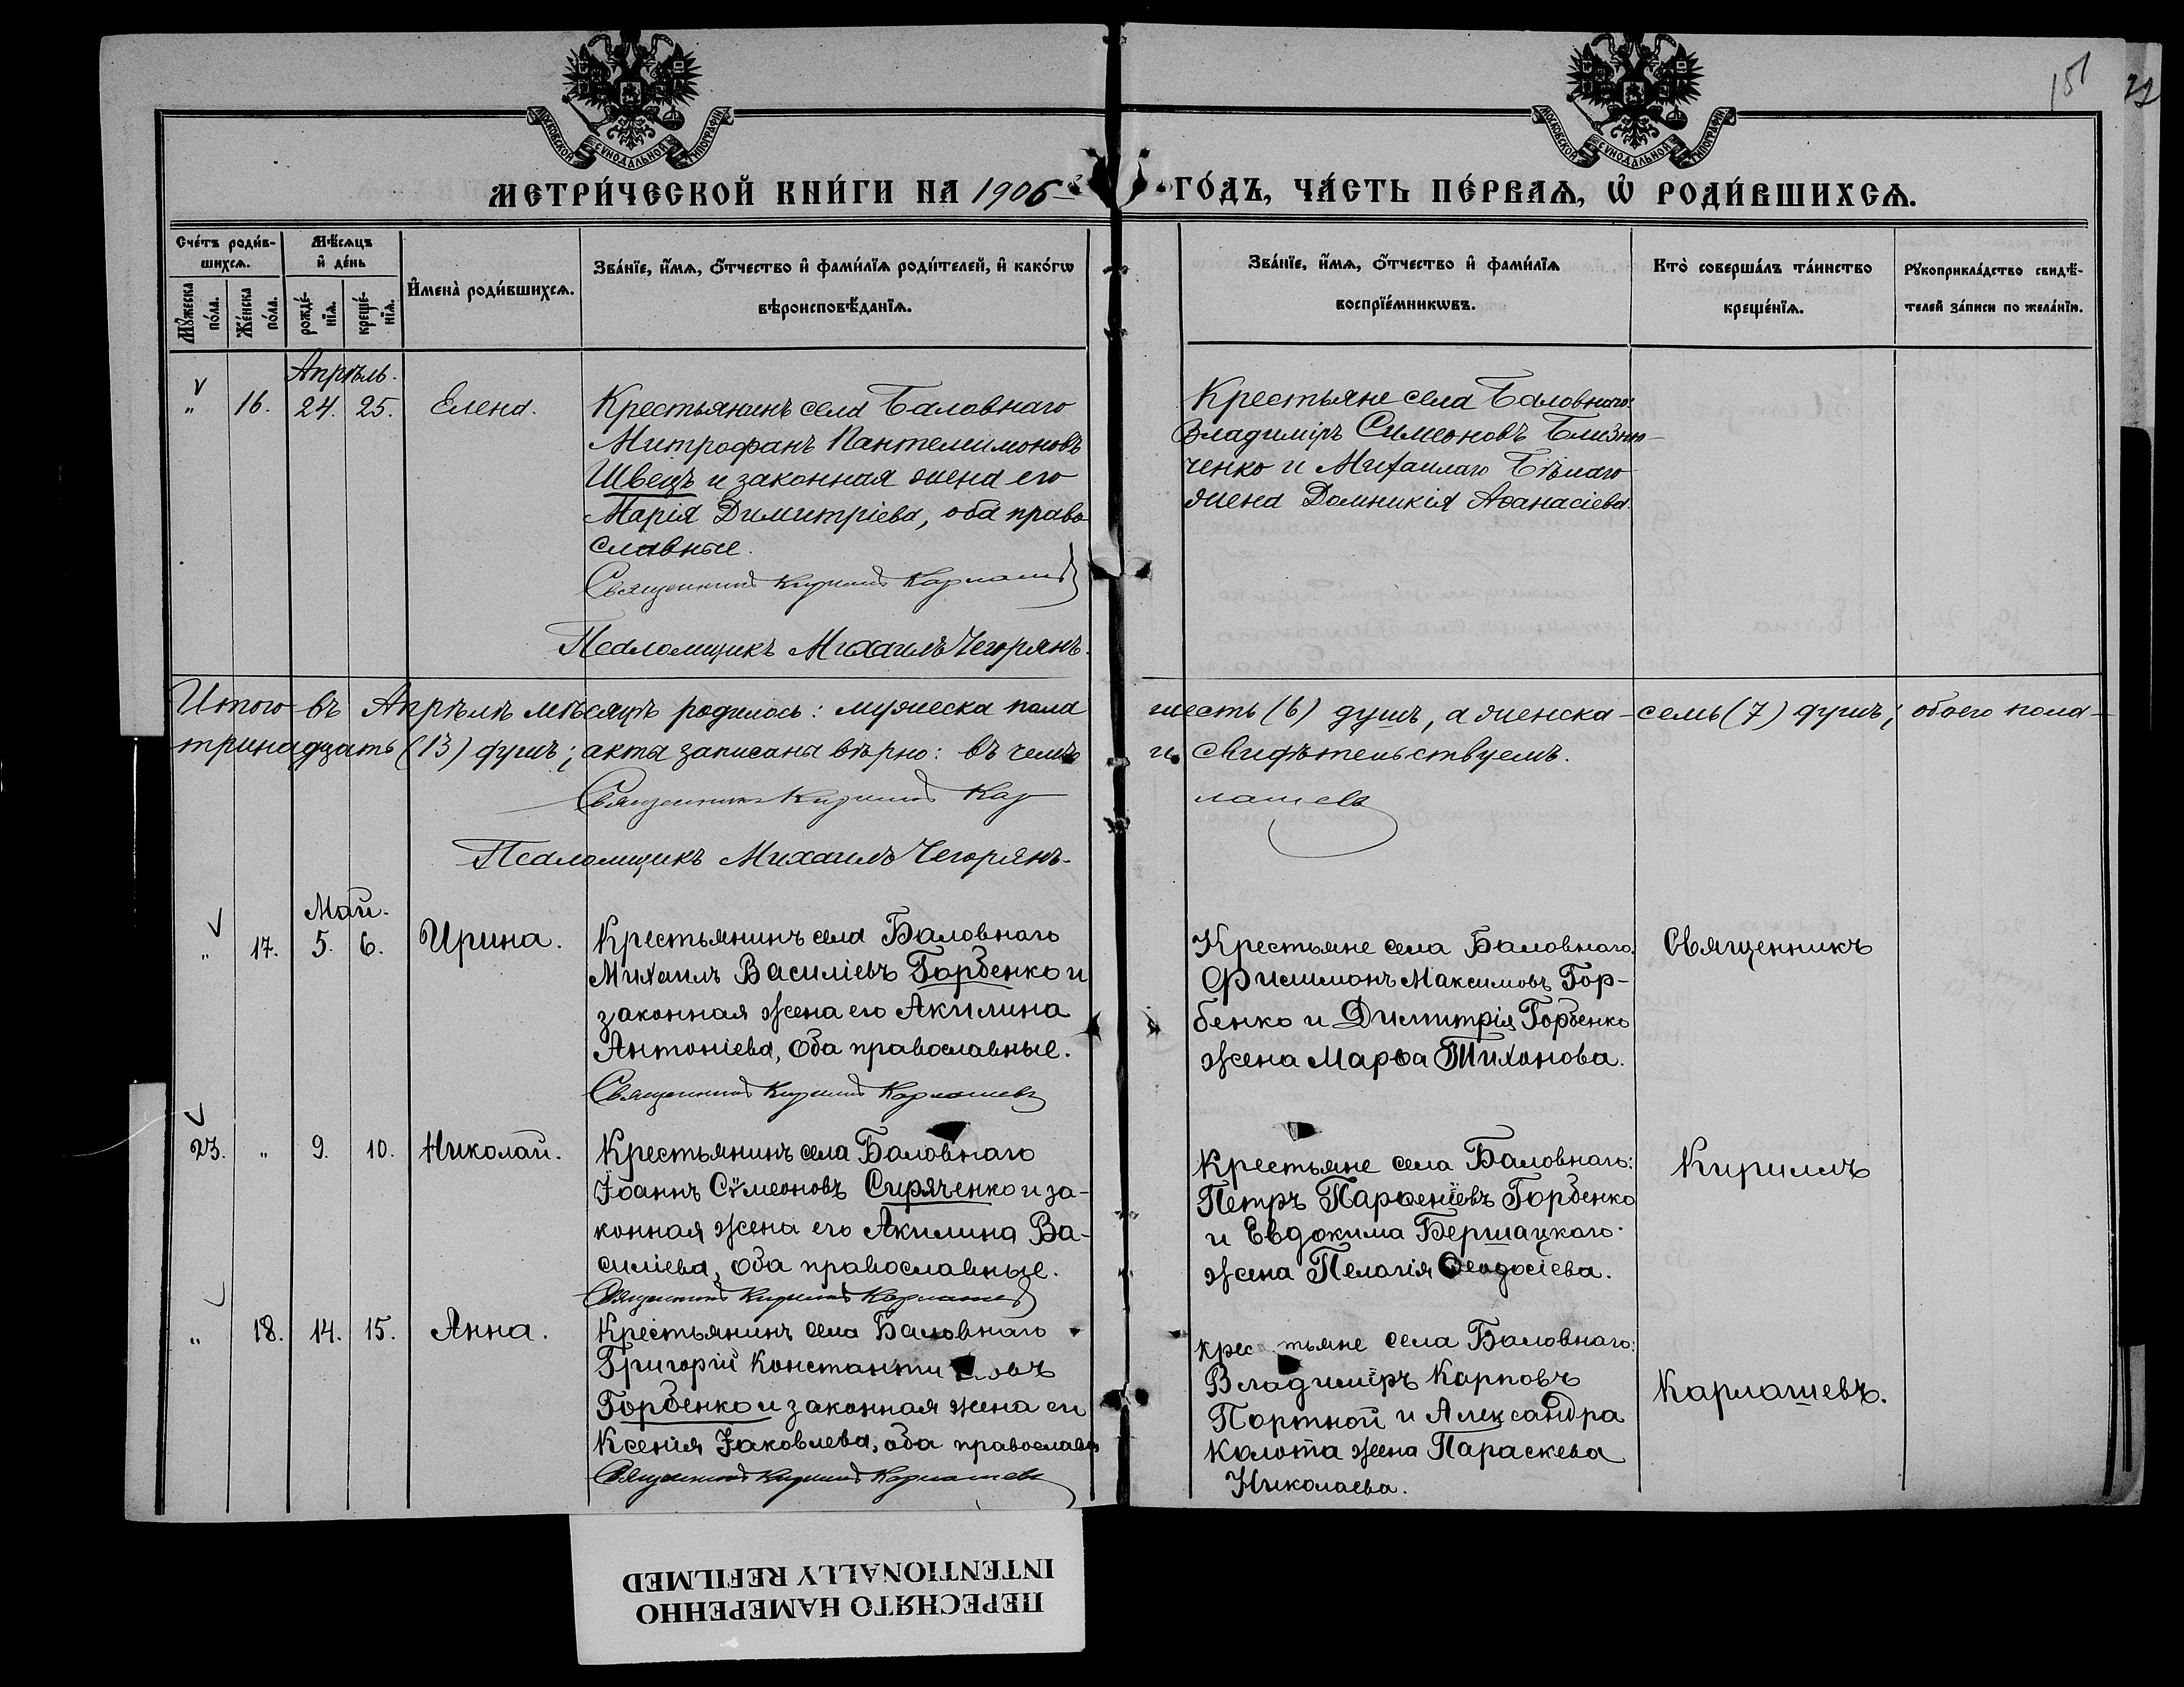 151
22
МОСКОВСКОЙ СѴНОДАЛЬНОЙ ТИПОГРАФІИ
МОСКОВСКОЙ СѴНОДАЛЬНОЙ ТИПОГРАФІИ
МЕТРИ́ЧЕСКОЙ КНИ́ГИ НА 1906 ГО́ДЪ, ЧА́СТЬ ПЕ́РВАѦ, Ѽ РОДИ́ВШИХСѦ.
Сче́тъ роди́в-
шихсѧ.
Мꙋ́жеска по́ла.
Же́нска по́ла.
Мѣ́сѧцъ
и҆ де́нь
рожде́-
нїѧ.
креще́-
нїѧ.
И҆мена̀ роди́вшихсѧ.
Зва́нїе, и҆́мѧ, ѻ҆́тчество и҆ фами́лїѧ роди́телей, и҆ како́гѡ
вѣроисповѣ́данїѧ.
Зва́нїе, и҆́мѧ, ѻ҆́тчество и҆ фами́лїѧ
воспрїе́мникѡвъ.
Кто̀ соверша́лъ та́инство
креще́нїѧ.
Рꙋкоприкла́дство свидѣ́-
телей за́писи по жела́нїю.
Апрѣль.
" 16. 24. 25. Елена.
Крестьянинъ села Баловнаго
Митрофанъ Пантелимоновъ
Швецъ и законная жена его
Марія Димитріева, оба право
славные.
Священникъ Кириллъ Карлашевъ
Псаломщикъ Михаилъ Чегорянъ.
Крестьяне села Баловнаго:
Владиміръ Симеоновъ Близню-
ченко и Михаилаго Бѣлаго
жена Домникія Аѳанасіева.
Итого въ Апрѣлѣ мѣсяцѣ родилось: мужеска пола шесть (6) душъ, а женска - семь (7) душъ; обоего пола -
тринадцать (13) душъ; акты записаны вѣрно: въ чемъ и свидѣтельствуемъ.
Священникъ Кириллъ Карлашевъ
Псаломщикъ Михаилъ Чегорянъ.
Май.
" 17. 5. 6. Ирина.
Крестьянинъ села Баловнаго
Михаилъ Василіевъ Горбенко и
законная жена его Акилина
Антоніева, оба православные.
Священникъ Кириллъ Карлашевъ
Крестьяне села Баловнаго:
Филимонъ Максимовъ Гор-
бенко и Димитрія Горбенко
жена Марѳа Тихонова.
Священникъ
23. " 9. 10. Николай.
Крестьянинъ села Баловнаго
Іоаннъ Сѵмеоновъ Сиряченко и за-
конная жена его Акилина Ва-
силіева, оба православные.
Священникъ Кириллъ Карлашевъ
Крестьяне села Баловнаго:
Петръ Парѳеніевъ Горбенко
и Евдокима Бершацкаго
жена Пелагія Ѳеодосіева.
Кириллъ
" 18. 14. 15. Анна.
Крестьянинъ села Баловнаго
Григорій Константиновъ
Горбенко и законная жена его
Ксенія Іаковлева, оба православн
Священникъ Кириллъ Карлашевъ
крестьяне села Баловнаго:
Владиміръ Карповъ
Портной и Александра
Колота жена Параскева
Николаева.
Карлашевъ.
ПЕРЕСНЯТО НАМЕРЕННО
INTENTIONALLY REFILMED